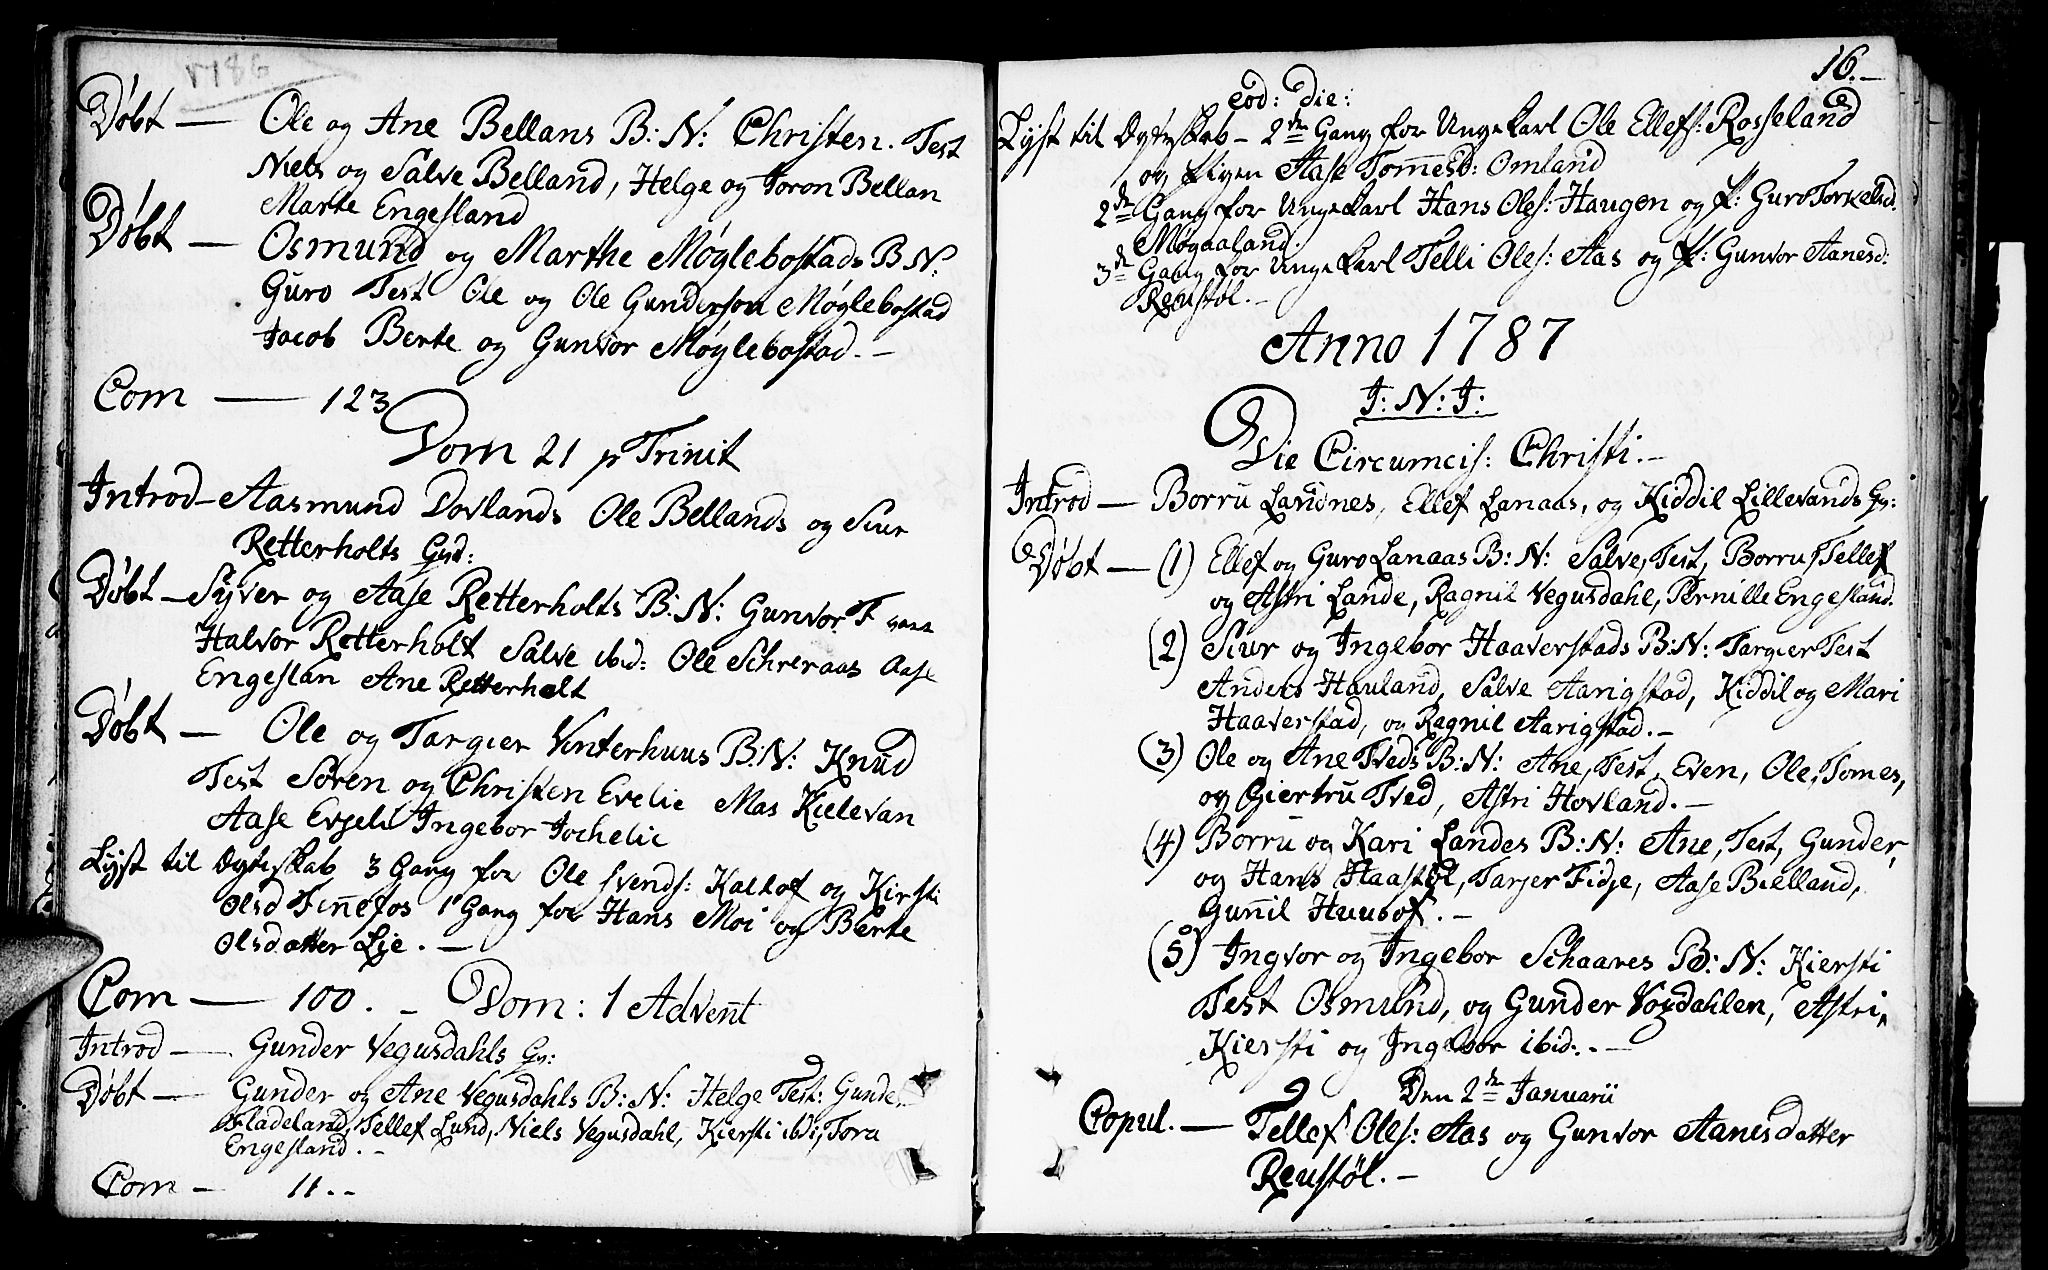 1786
Døbt — Ole og Ane Bellans B: N: Christen. Test
Niels og Salve Belland, Helge og Joron Bellan
Marte Engesland
Døbt — Osmund og Marthe Møglebostads B N:
Guro Test Ole og Ole Gunderson Møglebostad
Jacob Berte og Gunvor Møglebostad. —
Com — 123
Dom 21 p Trinit
Introd — Aasmund Dovlands Ole Bellands og Siur
Retterholts Gyd:
Døbt — Syver og Aase Retterholts B: N: Gunvor T
Halvor Retterholt Salve ibid: Ole Schreraas Aase
Engeslan Ane Retterholt
Døbt — Ole og Targier Vinterhuus B: N: Knud
Test Søren og Christen Evelie Mas Kielevan
Aase Ingebor Jochelie
Lyst til Ægteskab 3 Gang for Ole Svends: Kaltof og Kirsti
Olsd Finnefos 1 Gang for Hans Moi og Berte
Olsdatter Lie. —
Com — 100. — Dom: 1 Advent
Introd — Gunder Vegusdahls Gy:
Døbt — Gunder og Ane Vegusdahls B: N: Helge Test: Gunde
Fladeland, Tellef Lund, Niels Vegusdahl, Kiersti ibd:, Tora
Engesland. —
Com — 11. —
16. —
eod: die:
Lyst til Ægteskab — 2den Gang for Ungekarl Ole Ellefs: Rosseland
og Pigen Aase Tommesd: Omland
2de Gang for Ungekarl Hans Oles: Haugen og P: Guro Torkelsd.
Møgaaland.
3de Gang for Ungekarl Telli Oles: Aas og P: Gunvor Aanesd:
Reustøl. —
Anno 1787
J: N: J:
Die Circumcis: Christi. —
Introd — Borru Landnes, Ellef Lanaas, og Kiddil Lillevands Gy:
Døbt — (1) Ellef og Guro Lanaas B: N: Salve, Test, Borru, Tellef
og Astri Lande, Ragnil Vegusdahl, Pernille Engesland.
(2) Siur og Ingebor Haaverstads B: N: Targier Test
Anders Hauland, Salve Aarigstad, Kiddil og Mari
Haaverstad, og Ragnil Aarigstad. —
(3) Ole og Ane Tveds B: N: Ane, Test, Even, Ole, Tomes,
og Giertru Tved, Astri Hovland. —
(4) Borru og Kari Landes B: N: Ane, Test, Gunder,
og Hans Haastøl, Tarjer Fidje, Aase Bielland,
Gunnil Huusof. —
(5) Ingvor og Ingebor Schaares B: N: Kiersti
Test Osmund, og Gunder Vogdahlen, Astri,
Kiersti og Ingebor ibid: —
Den 2de Januarii
Copul. — Tellef Oles: Aas og Gunvor Aanesdatter
Reustøl. —